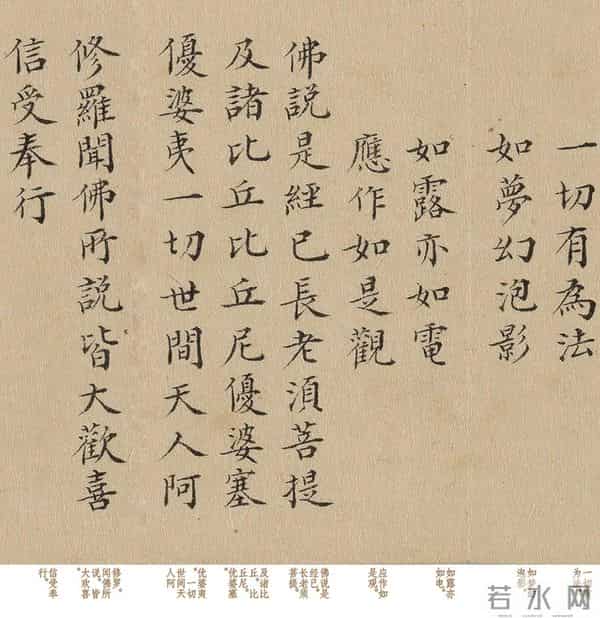 一切有為法
如夢幻泡影
如露亦如電
應作如是觀
佛說是經已長老須菩提
及諸比丘比丘尼優婆塞
優婆夷一切世間天人阿
修羅聞佛所說皆大歡喜
信受奉行
一切
为
如
泡影。
如露亦
如电。
应作如
是观。
佛说是
经已。
长老须
菩提。
及诸比
丘。比
丘尼。
优婆塞
优婆夷
。一切
世间天
人阿
修罗。
闻佛所
说。皆
大欢喜
信受奉
行。
若水网